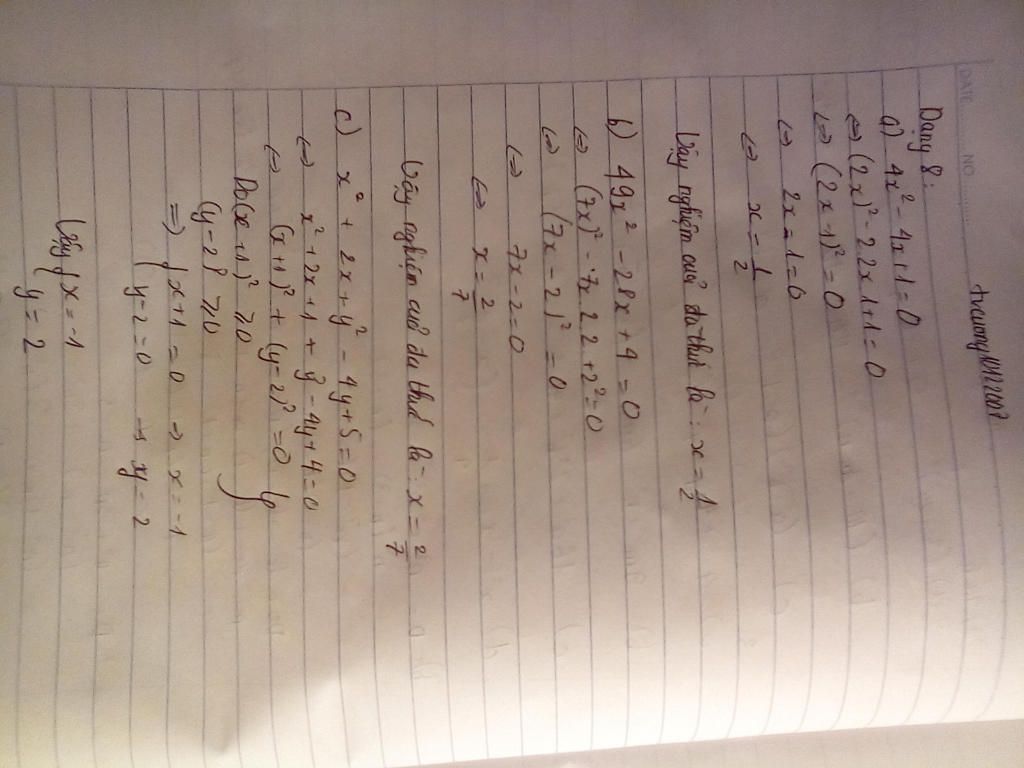 DATE NO
Dạng 8:
a) 4x² - 4x + 1 = 0
⇔ (2x)² - 2.2x.1 + 1 = 0
⇔ (2x - 1)² = 0
⇔ 2x - 1 = 0
⇔ x = 1/2
Vậy nghiệm của đa thức là: x = 1/2
b) 49x² - 28x + 4 = 0
⇔ (7x)² - 7x.2.2 + 2² = 0
⇔ (7x - 2)² = 0
⇔ 7x - 2 = 0
⇔ x = 2/7
Vậy nghiệm của đa thức là: x = 2/7
c) x² + 2x + y² - 4y + 5 = 0
⇔ x² + 2x + 1 + y² - 4y + 4 = 0
⇔ (x + 1)² + (y - 2)² = 0
Do (x + 1)² ≥ 0
(y - 2)² ≥ 0
⇒ { x + 1 = 0 → x = -1
y - 2 = 0 → y = 2
Vậy { x = -1
y = 2